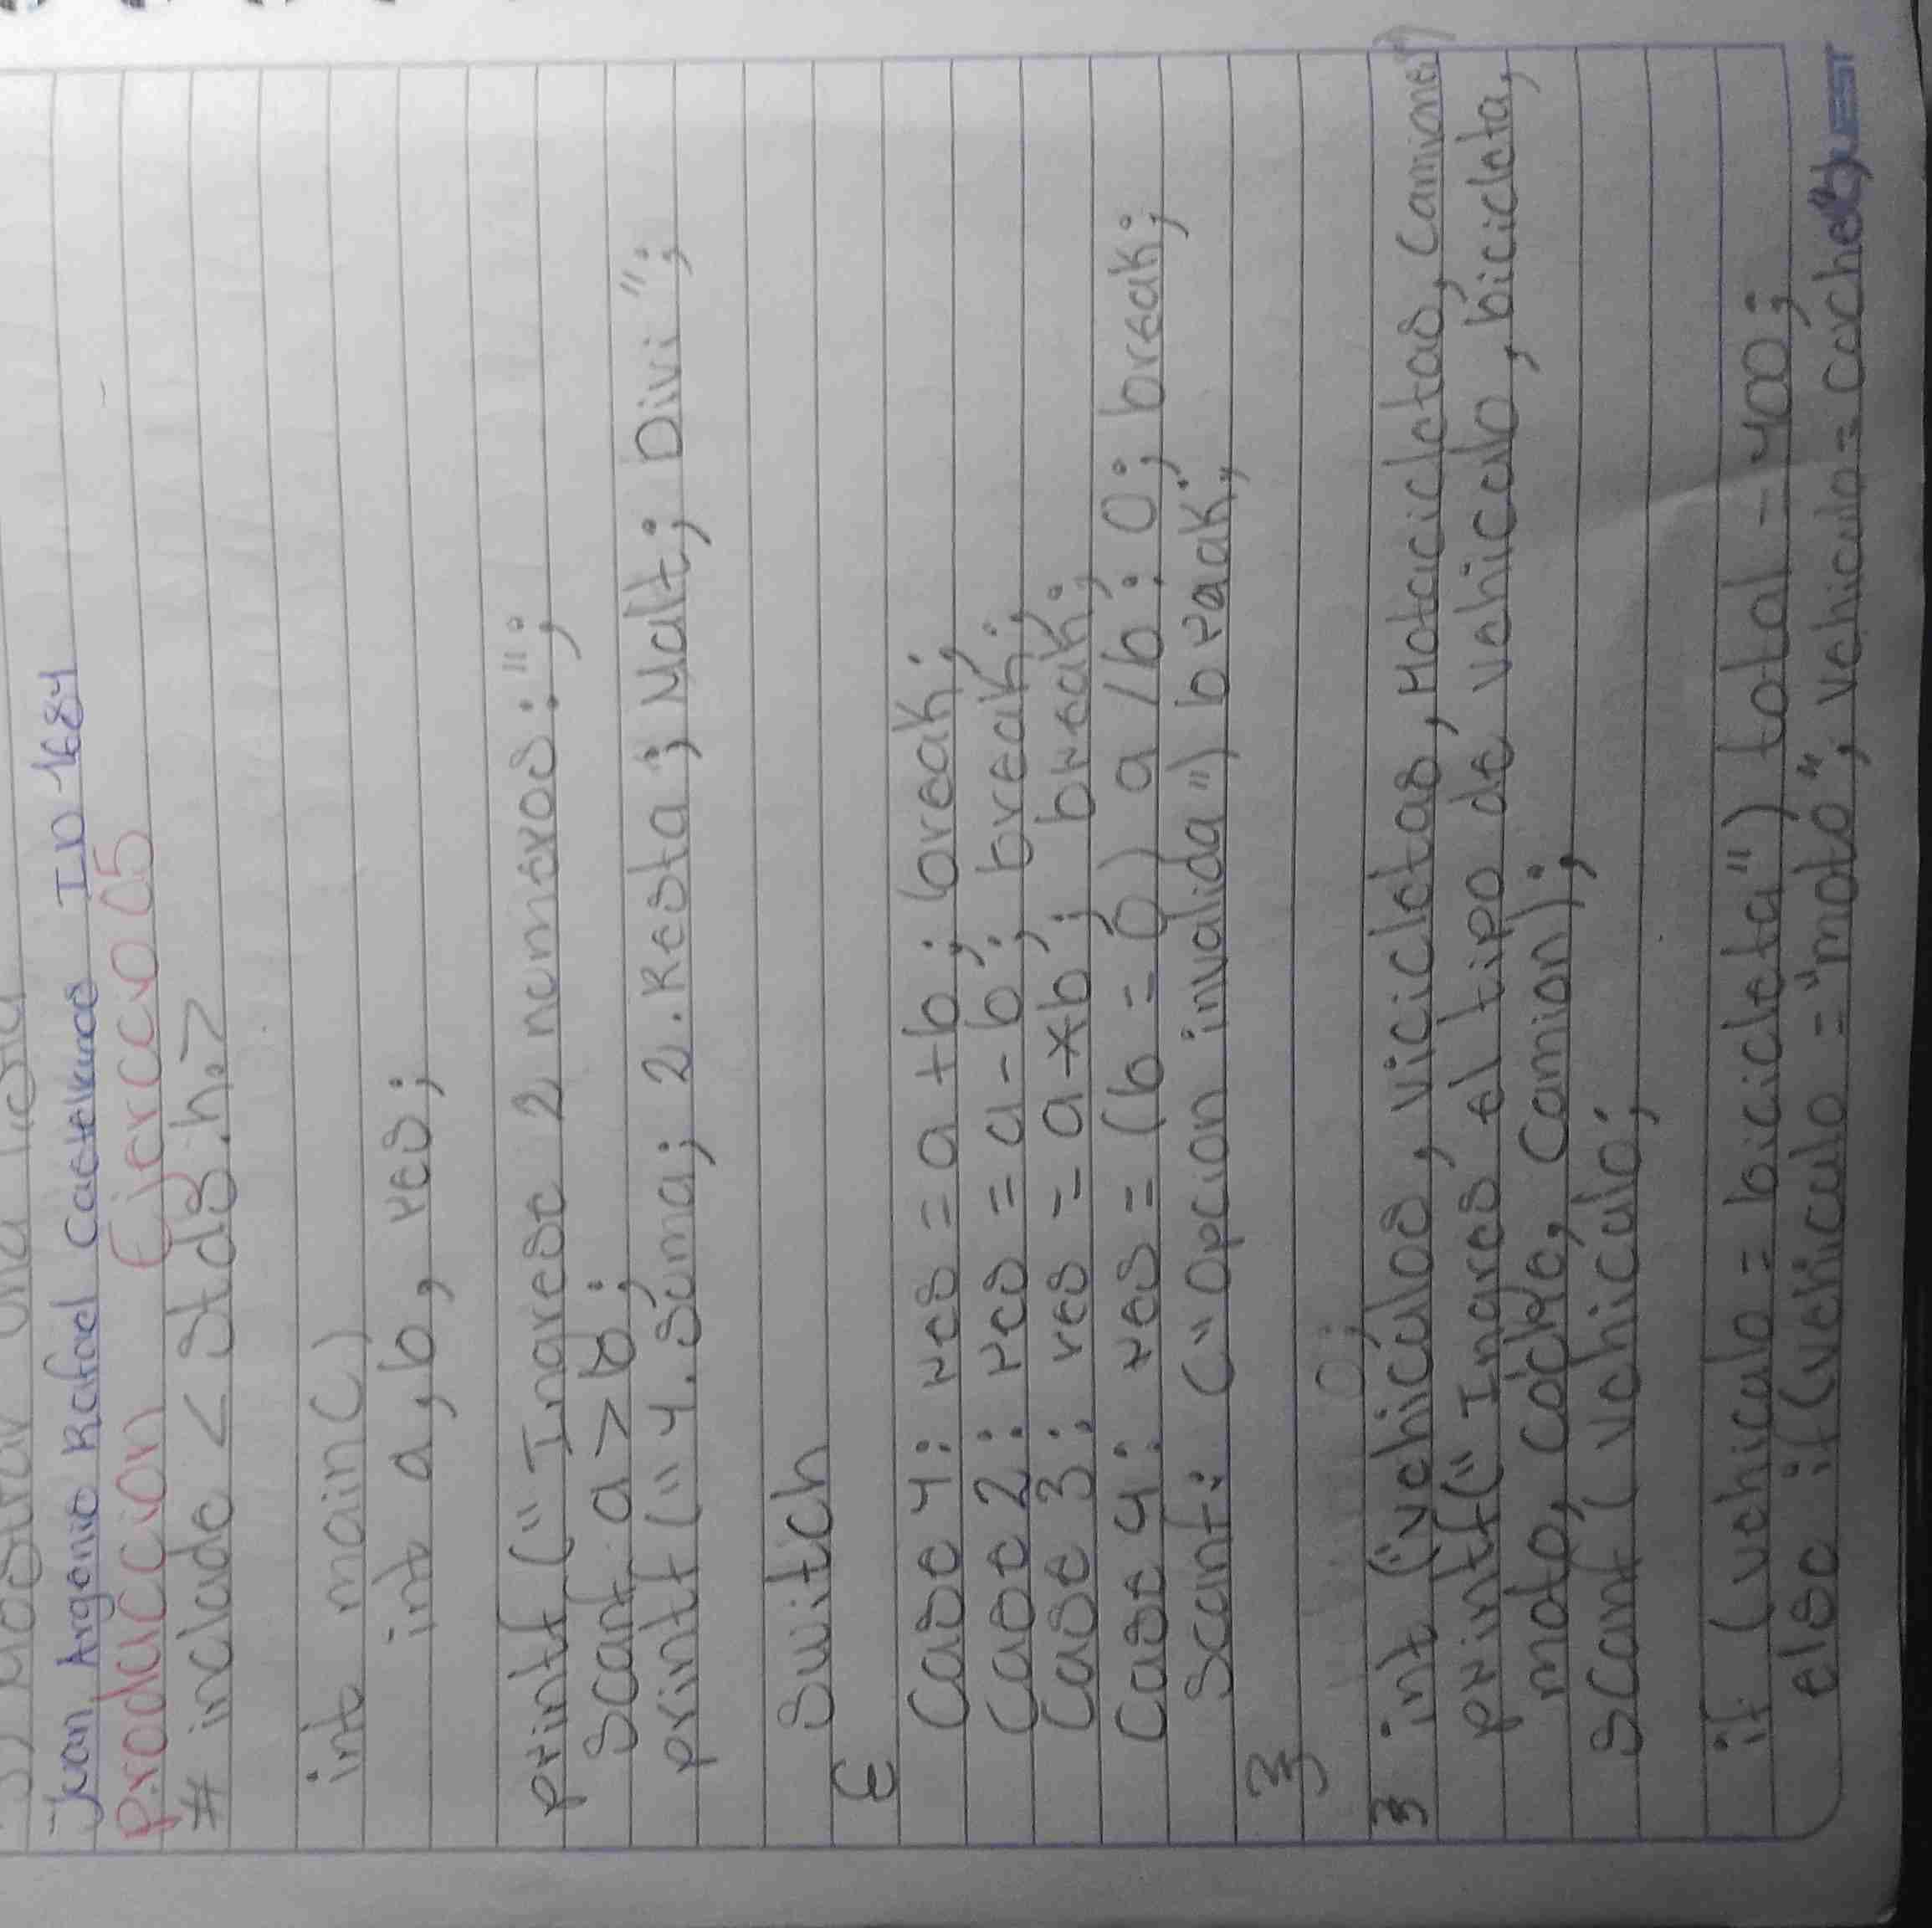 Mostrar una
Juan Argenio Rafael Castellanos ID 1684
Produccion Ejercicio 05
# include < Std8.h.>
int main()
int a,b, res;
printf (" Ingrese 2 numeros:";
Scanf a > b;
printf (" 1. Suma; 2. Resta; Mult; Divi ";
Switch
{
Case 1: res = a + b; break;
Case 2: res = a - b; break;
Case 3: res = a * b; break;
Case 4: res = (b = 0) a / b : 0; break;
Scanf: (" Opcion invalida") break;
}
0;
3 int ("vehiculos, vicicletas, Motocicletas,
printf(" Ingres el tipo de vehiculo, bicicleta,
moto, coche, Camion);
Scanf ( vehiculo;
if (vehiculo = bicicleta") total - 400;
else if (vehiculo = "moto", vehiculo = coche
QUEST